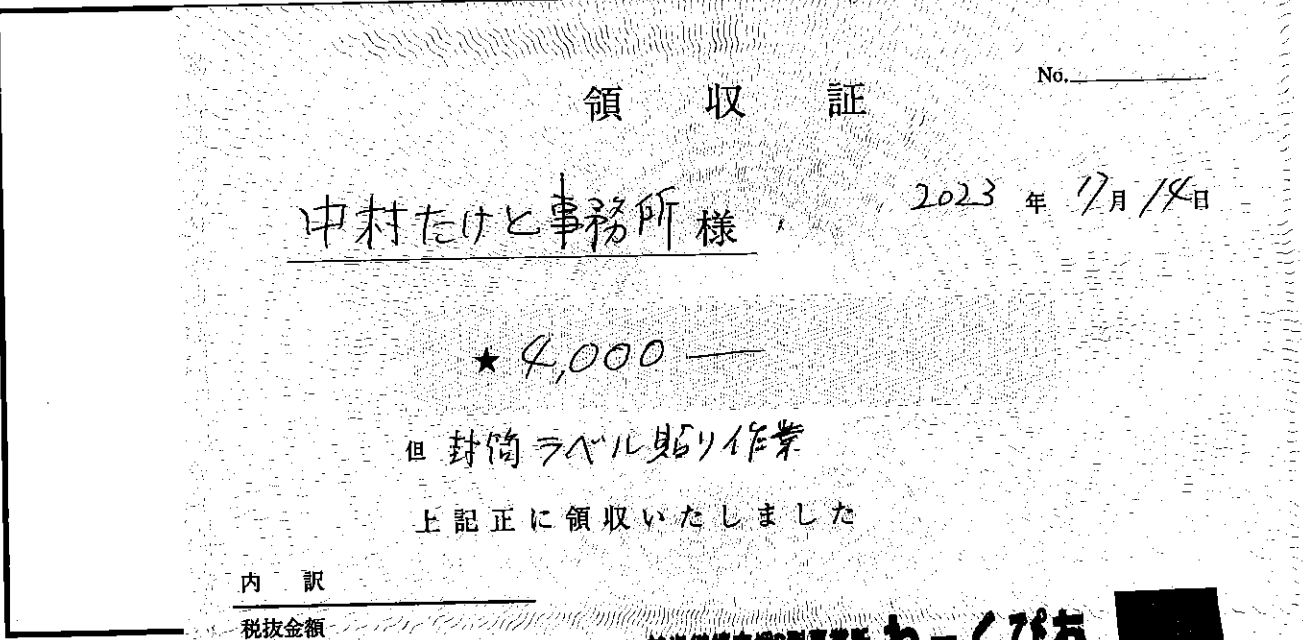 No.
領収証
中村たけと事務所 様
2023 年 月 14日
★ 4,000 ―
但 封筒ラベル貼り作業
上記正に領収いたしました
内 訳
税抜金額
わーくぴあ